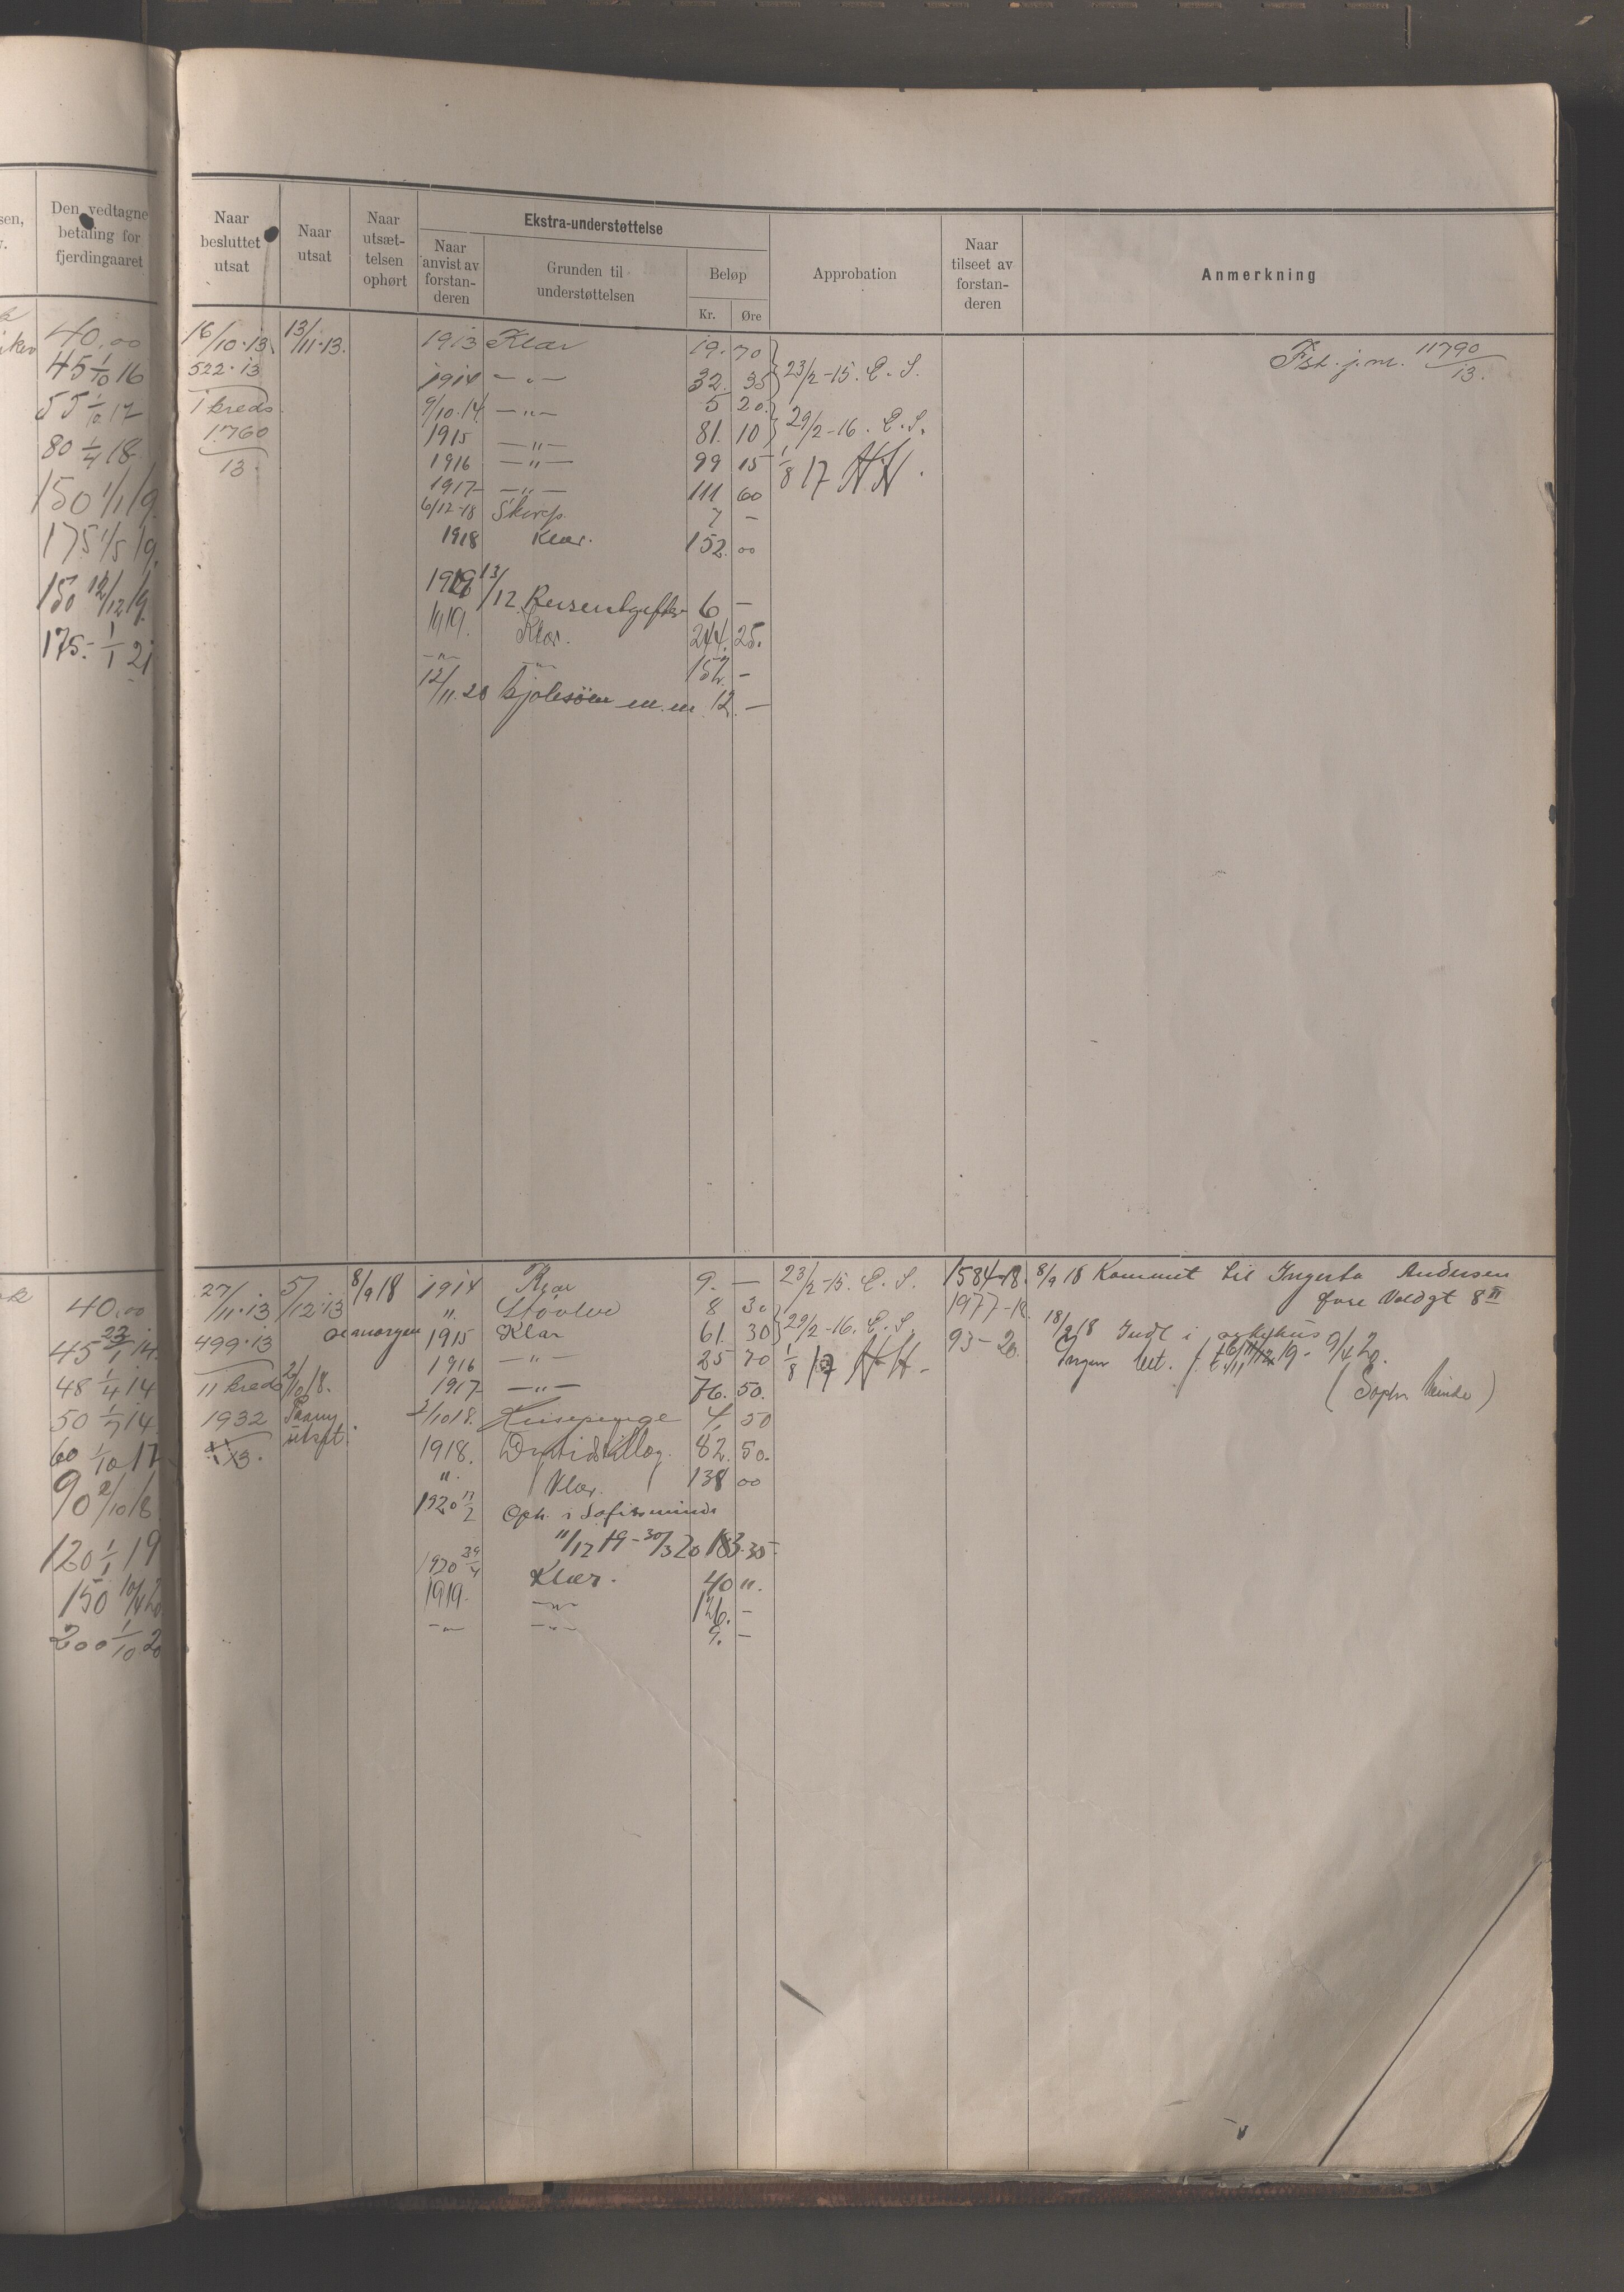 sen,
Den vedtagne
betaling for
fjerdingaaret
40.00
45 1/10 16
55 1/10 17
80 1/4 18
150 1/1 19
175 1/5 19
150 12/12 19
175.- 1/1 21
40.00
45 23/1 14
48 1/4 14
50 1/7 14
60 1/10 17
90 2/10 18
120 1/1 19
150 10/4 20
200 1/10 20
Naar
besluttet
utsat
Naar
utsat
Naar
utsæt-
telsen
ophørt
Ekstra-understøttelse
Naar
anvist av
forstan-
deren
Grunden til
understøttelsen
Beløp
Kr.
Øre
Approbation
Naar
tilseet av
forstan-
deren
Anmerkning
16/10.13 13/11.13. 1913 Klær 19. 70
Fst. j.nr. 11790/13.
522.13 1914 —„— 32. 35 } 23/2-15. E. S.
1 kreds 9/10.14. —„— 5 20.
1760/13. 1915 —„— 81. 10 } 29/2-16. E. S.
1916 —„— 99 15 1/8 17 HH.
1917 —„— 111 60
6/12-18 7 —
1918 Klær. 152. 00
13/12 6 —
1919. Klær. 244. 25.
—„— —„— 152. —
12/11.20 Kjolesøm m.m. 12. —
27/11.13 5/12.13 8/9 18 1914 Klær 9. — 23/2-15. E. S. 1584-18. 8/9 18 Kommet til Andersen
„ Støvler 8 30 1977-18 Voldgt 8 II
499.13 1915 Klær 61. 30 } 29/2-16. E. S. 18/2 18 Indl i sykehus
11 kreds 2/10 18. 1916 —„— 25 70 1/8 17 HH- 93-20. 9/4 20.
1917 —„— 76. 50. (Soph. Minde)
1932 Paany 2/10 18. 4, 50
13. utsat. 1918. 82. 50.
„. Klær. 138 00
1920 Oph. i Sofiesminde
11/12 19 - 30/3 20 183.35
1920 Klær. 40 „.
1919. —„— 126. -
—„— —„— 9. —